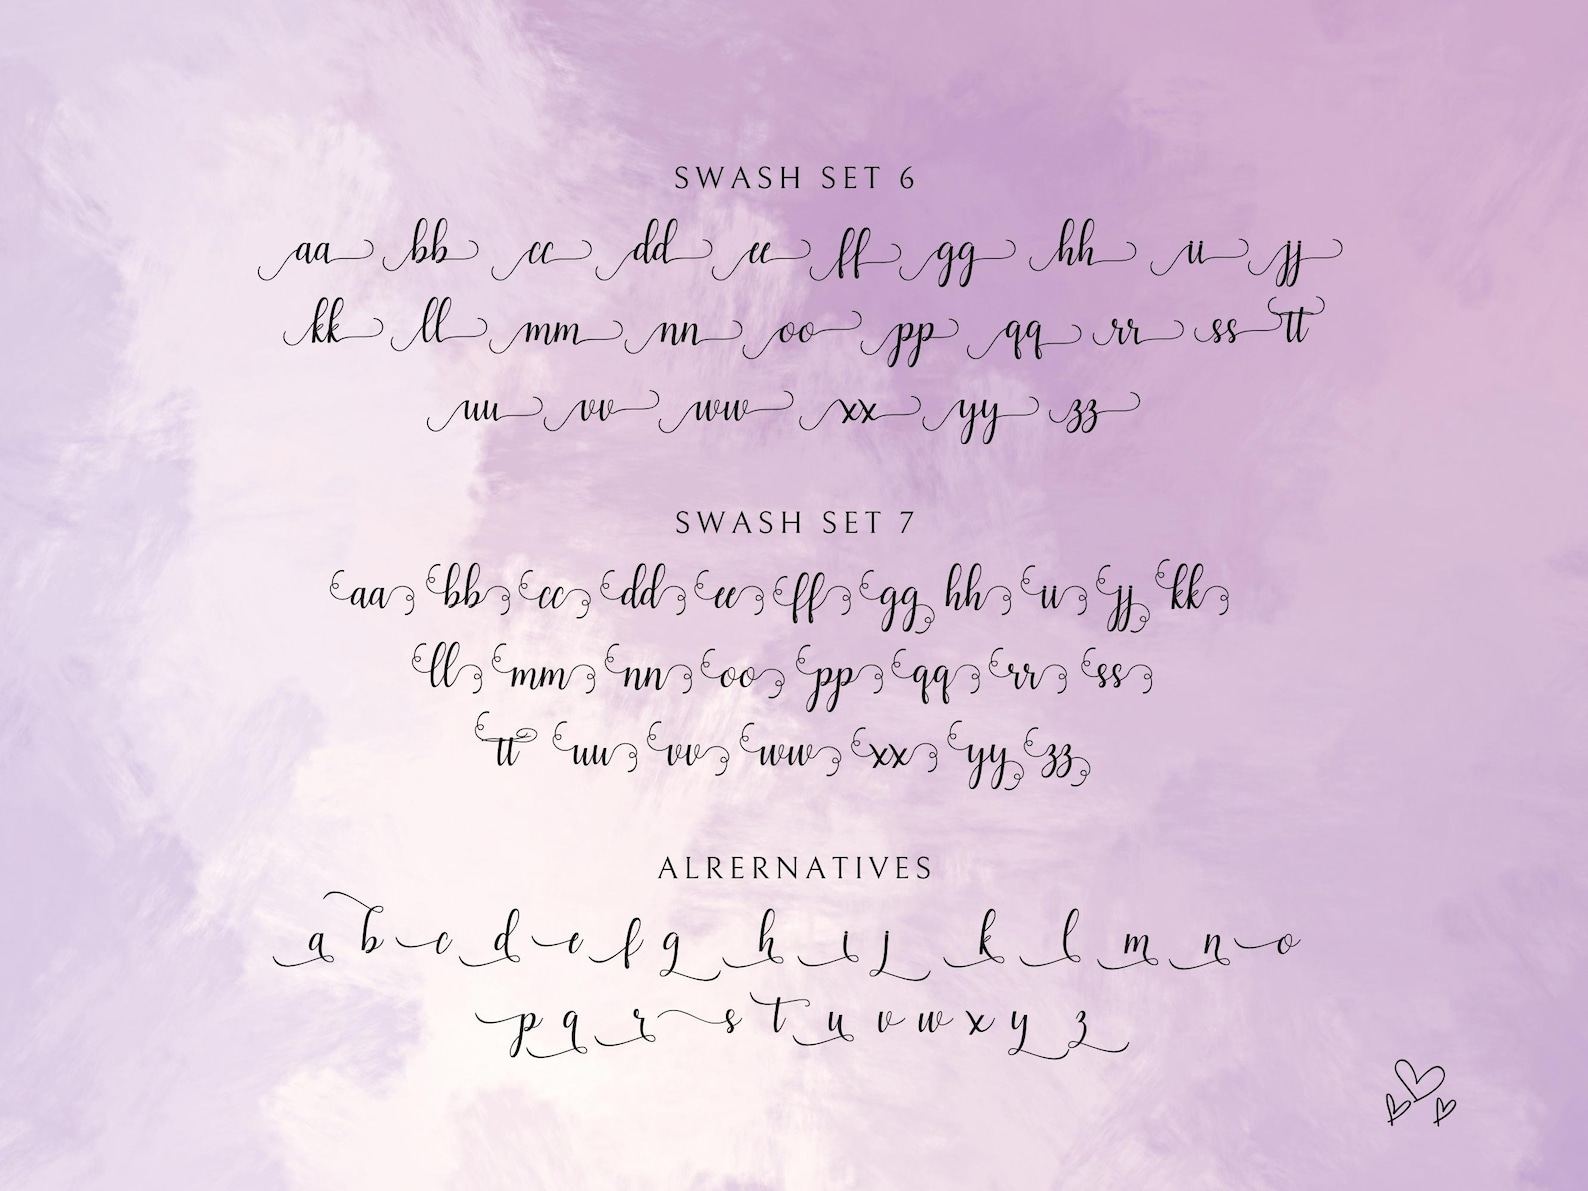 SWASH SET 6
aa bb cc dd ee ff gg hh ii jj
kk ll mm nn oo pp qq rr ss tt
uu vv ww xx yy zz
SWASH SET 7
aa bb cc dd ee ff gg hh ii jj kk
ll mm nn oo pp qq rr ss
tt uu vv ww xx yy zz
ALRERNATIVES
a b c d e f g h i j k l m n o
p q r s t u v w x y z